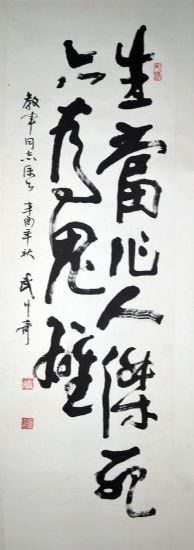 生當作人傑死
亦為鬼雄
教軍同志屬
辛酉年秋 武中奇